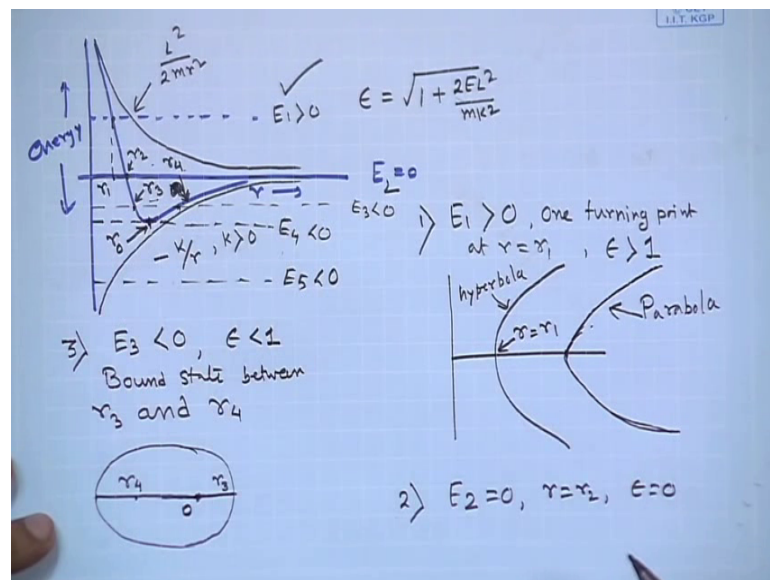 I.I.T. KGP
L²/2mr²
ϵ = √1 + 2EL²/mk²
E₁>0
Energy
r₂
r₄
r₁
r₃
r
E₂=0
E₃<0
r₀
-k/r, k>0
E₄<0
E₅<0
1) E₁ > 0, One turning print
at r=r₁, ϵ>1
hyperbola
Parabola
r=r₁
3) E₃ <0, ϵ<1
Bound state between
r₃ and r₄
r₄
r₃
0
2) E₂ =0, r=r₂, ϵ=0